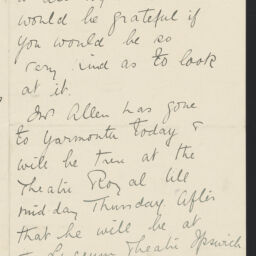 would be grateful if
you would be so
very kind as to look
at it.
Mr Allen has gone
to Yarmouth today &
will be there at the
Theatre Royal till
mid day Thursday. After
that he will be at
Lyceum Theatre Ipswich